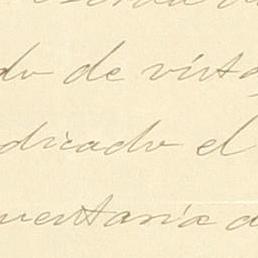 do de vista
dicado el
ventaria d